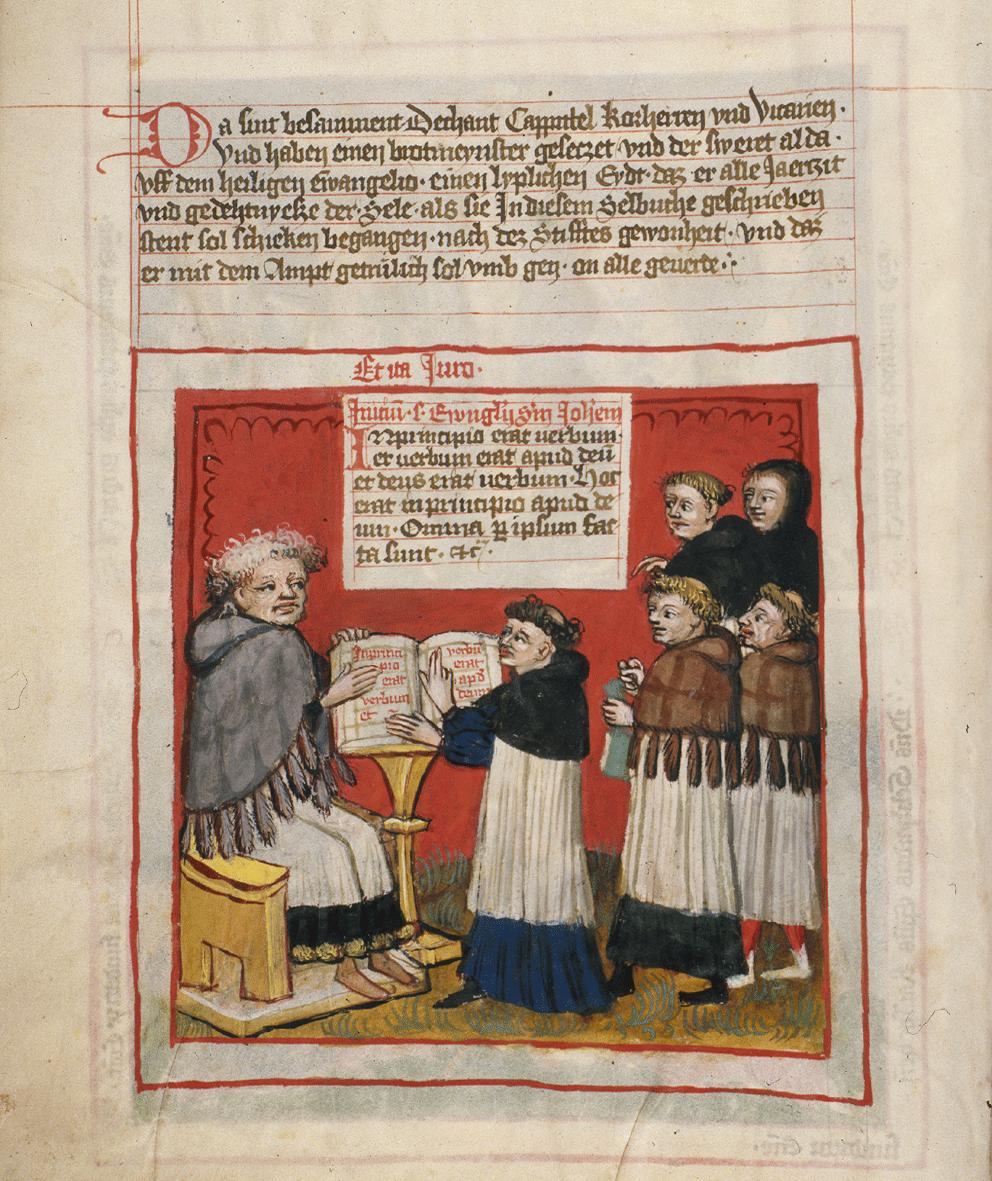 Da sint besamment Dechant Cappittel Korherren vnd Vicarien ·
Vnd haben einen brotmeynster geseczet · vnd der sweret alda ·
vff dem heiligen Ewangelio · einen lyplichen Eydt · daz er alle Jaerzit
vnd gedehtnycsze der · Sele · als sie In diesem Selbuche geschrieben
stent sol schicken begangen · nach dez Stifftes gewonheit · vnd daz
er mit dem Ampt getrulich sol vmb gen · on alle geuerde ·
Et ita Juro ·
Iniciū · s · Ewnglij sm Johem
INprincipio erat uerbum ·
et uerbum erat apud deū
et deus erat uerbum · Hoc
erat in principio apud de
um · Omnia ꝑ ipsum fac
ta sunt · &c ·
Inprinci
pio
erat
verbum
et
verbū
erat
apd
deum